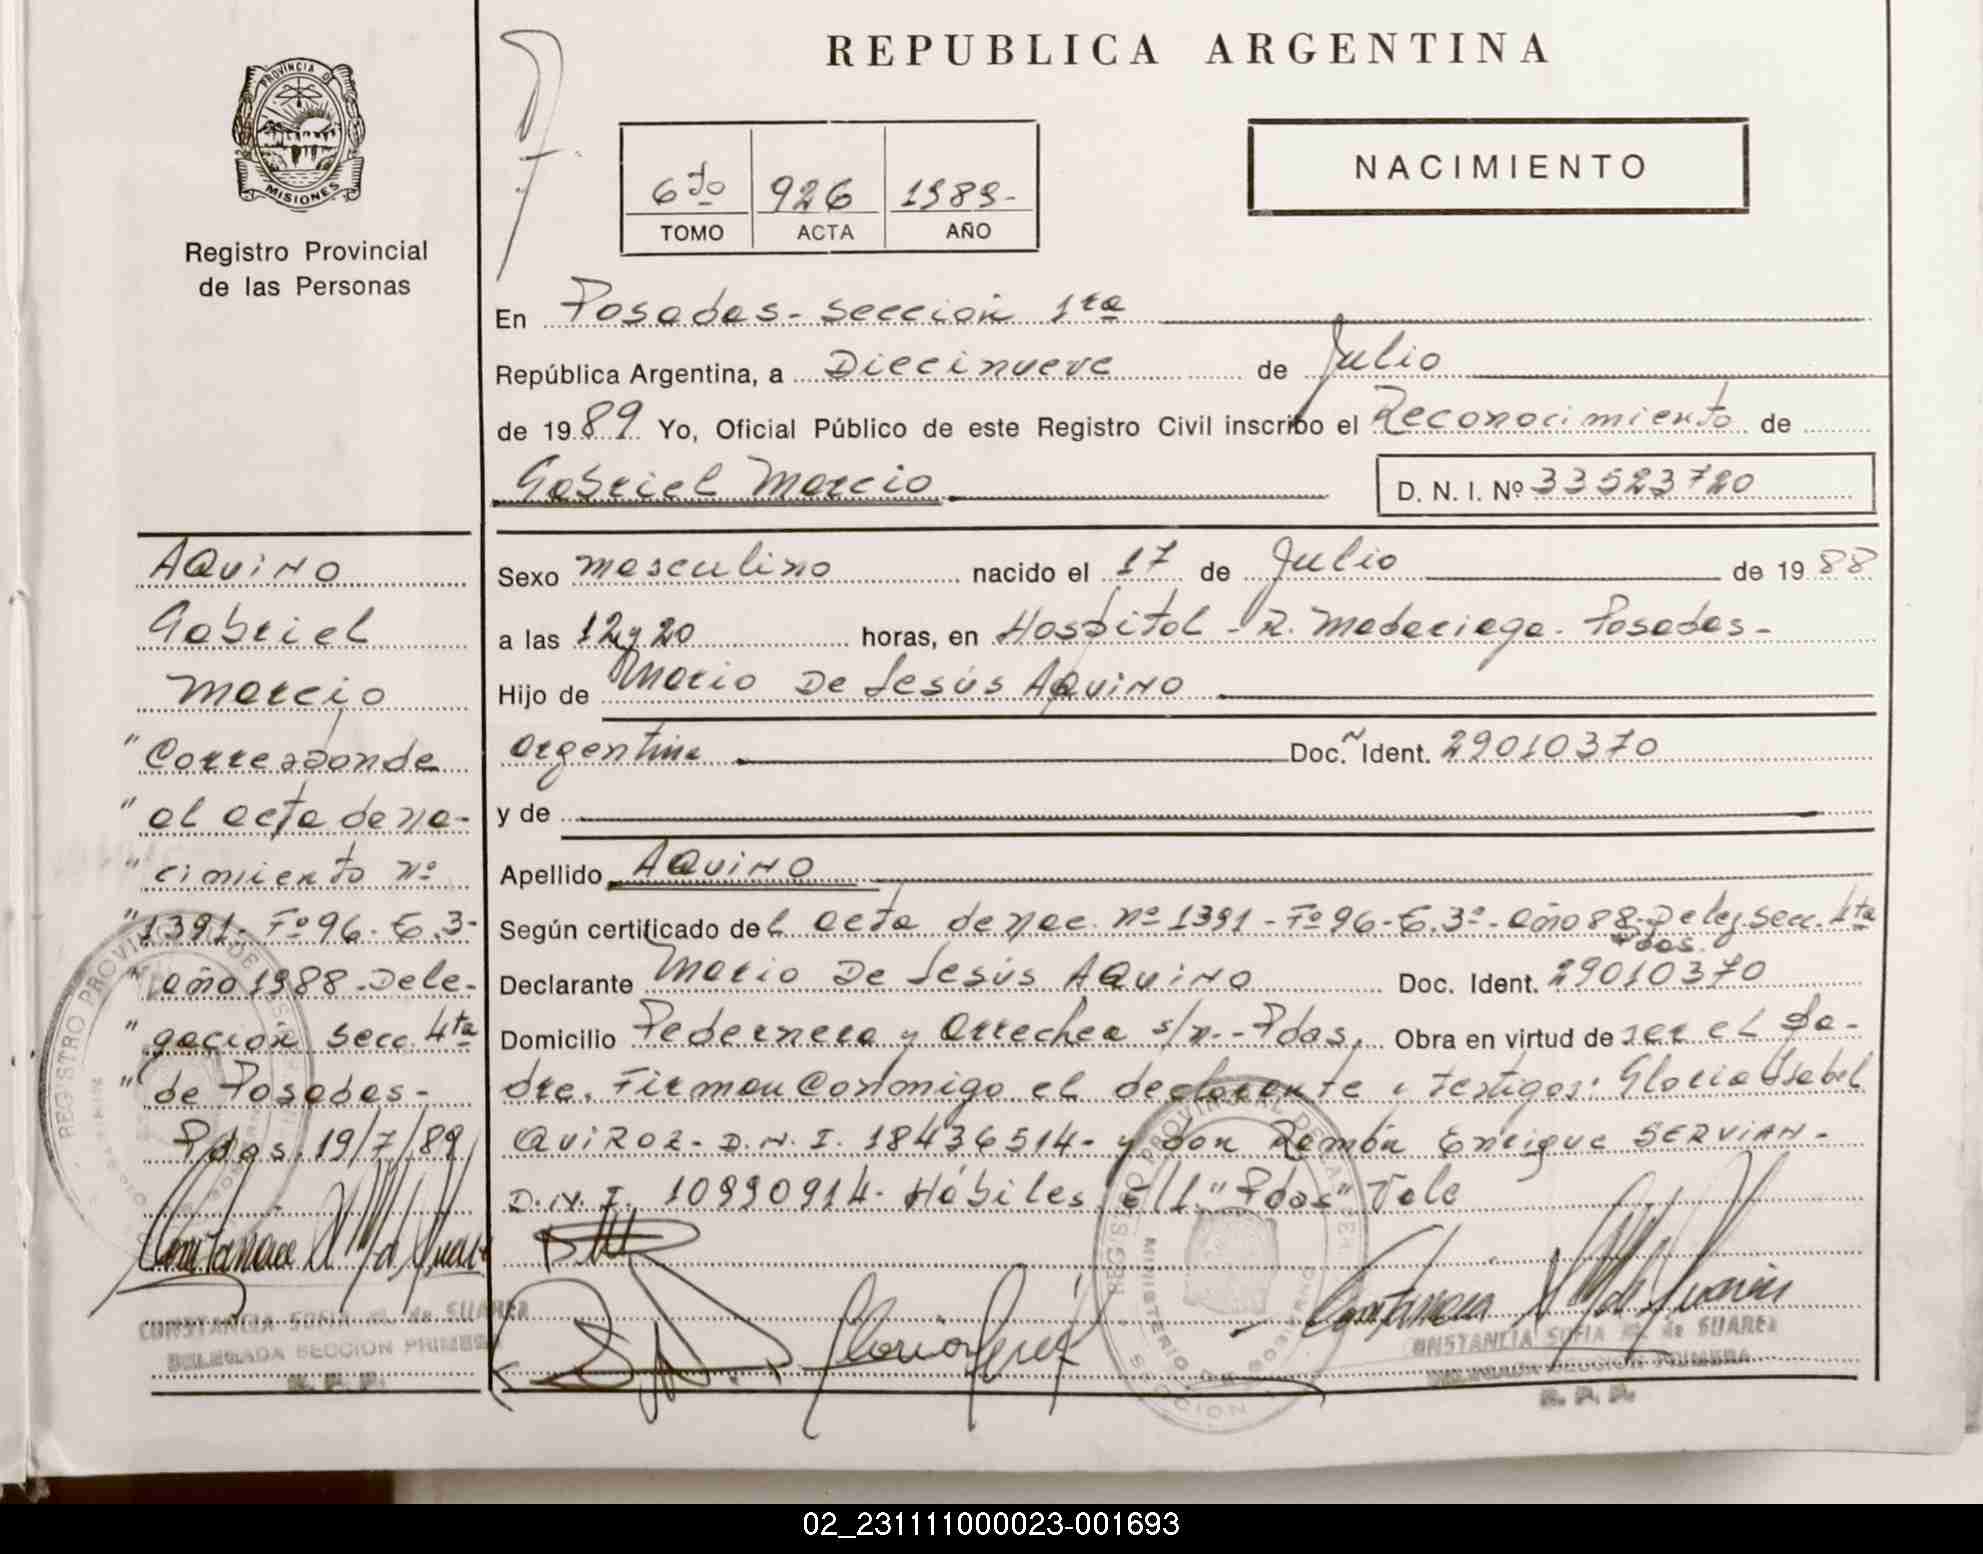 REPUBLICA ARGENTINA
PROVINCIA D
MISIONES
Registro Provincial
de las Personas
NACIMIENTO
6to 926 1989-
TOMO ACTA AÑO
En Posadas - sección 1ra
República Argentina, a Diecinueve de Julio
de 1989 Yo, Oficial Público de este Registro Civil inscribo el Reconocimiento de
Gabriel Marcio D. N. I. Nº 33523720
Sexo masculino nacido el 17 de Julio de 1988
a las 12 y 20 horas, en Hospital - R. Madariaga. Posadas -
Hijo de Mario De Jesús AQUINO
argentina Doc. Ident. 29010370
y de
Apellido AQUINO
Según certificado del acta de nac. nº 1391 - Fº 96 - T. 3º - año 88 - Deleg. Secc. 4ta
Pdas.
Declarante Mario De Jesús AQUINO Doc. Ident. 29010370
Domicilio Pedernera y Arrechea s/n. - Pdas. Obra en virtud de ser el pa-
dre. Firman conmigo el declarante y testigos: Gloria Isabel
QUIROZ - D.N.I. 18436514 - y don Ramón Enrique SERVIAN -
D.N.I. 10990914 - Hábiles. E/l "Pdas" Vale
AQUINO
Gabriel
Marcio
"Corresponde
" al acta de na-
" cimiento nº
" 1391 - Fº 96 - T. 3-
" año 1988 - Dele-
" gación Secc. 4ta
" de Posadas -
Pdas. 19/7/89
CONSTANCIA SOFIA M. de SUAREZ
DELEGADA SECCION PRIMERA
R. P. P.
CONSTANCIA SOFIA M. de SUAREZ
DELEGADA SECCION PRIMERA
R. P. P.
02_231111000023-001693